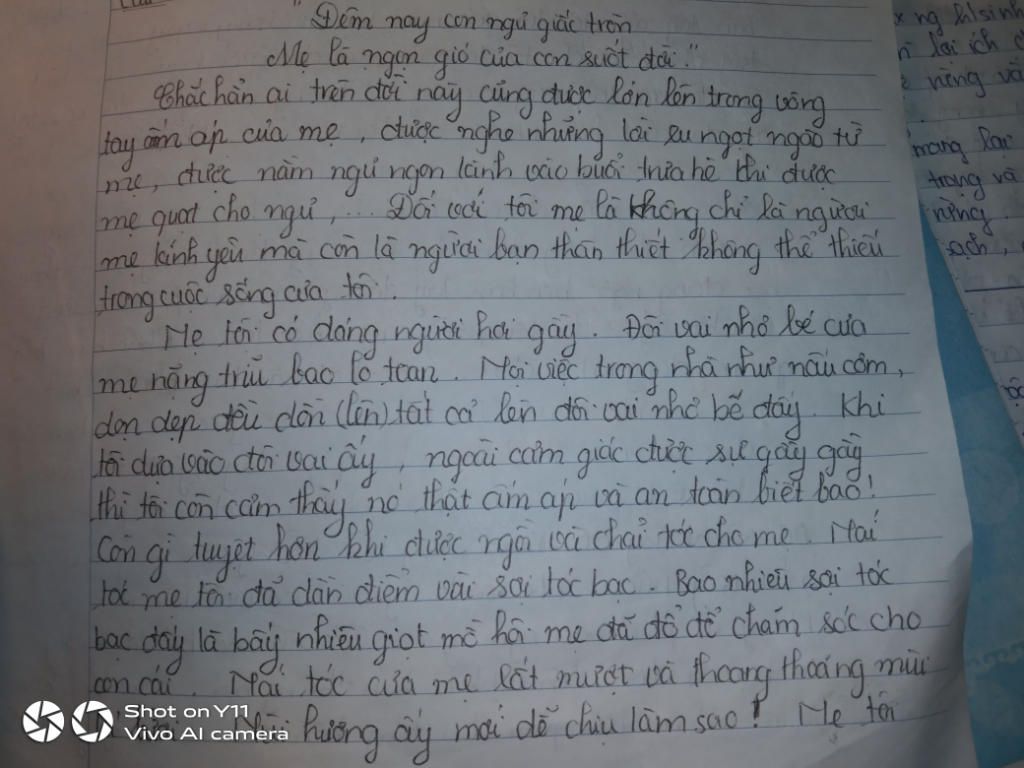 "Đêm nay con ngủ giấc tròn
Mẹ là ngọn gió của con suốt đời."
Chắc hẳn ai trên đời này cũng được lớn lên trong vòng
tay ấm áp của mẹ, được nghe những lời ru ngọt ngào từ
mẹ, được nằm ngủ ngon lành vào buổi trưa hè khi được
mẹ quạt cho ngủ,... Đối với tôi mẹ là không chỉ là người
mẹ kính yêu mà còn là người bạn thân thiết không thể thiếu
trong cuộc sống của tôi.
Mẹ tôi có dáng người hơi gầy. Đôi vai nhỏ bé của
mẹ nặng trĩu bao lo toan. Mọi việc trong nhà như nấu cơm,
dọn dẹp đều dồn (lên) tất cả lên đôi vai nhỏ bé đấy. Khi
tôi dựa vào đôi vai ấy, ngoài cảm giác được sự gầy gầy
thì tôi còn cảm thấy nó thật ấm áp và an toàn biết bao!
Còn gì tuyệt hơn khi được ngồi và chải tóc cho mẹ. Mái
tóc mẹ tôi đã dần điểm vài sợi tóc bạc. Bao nhiêu sợi tóc
bạc đấy là bấy nhiêu giọt mồ hôi mẹ đã đổ để chăm sóc cho
con cái. Mái tóc của mẹ rất mượt và thoang thoảng mùi
hương ấy mới dễ chịu làm sao! Mẹ tôi
Shot on Y11
Vivo AI camera
x ng h/sinh
lại ích
riêng và
mang lạc
trọng và
riêng.
sạch,